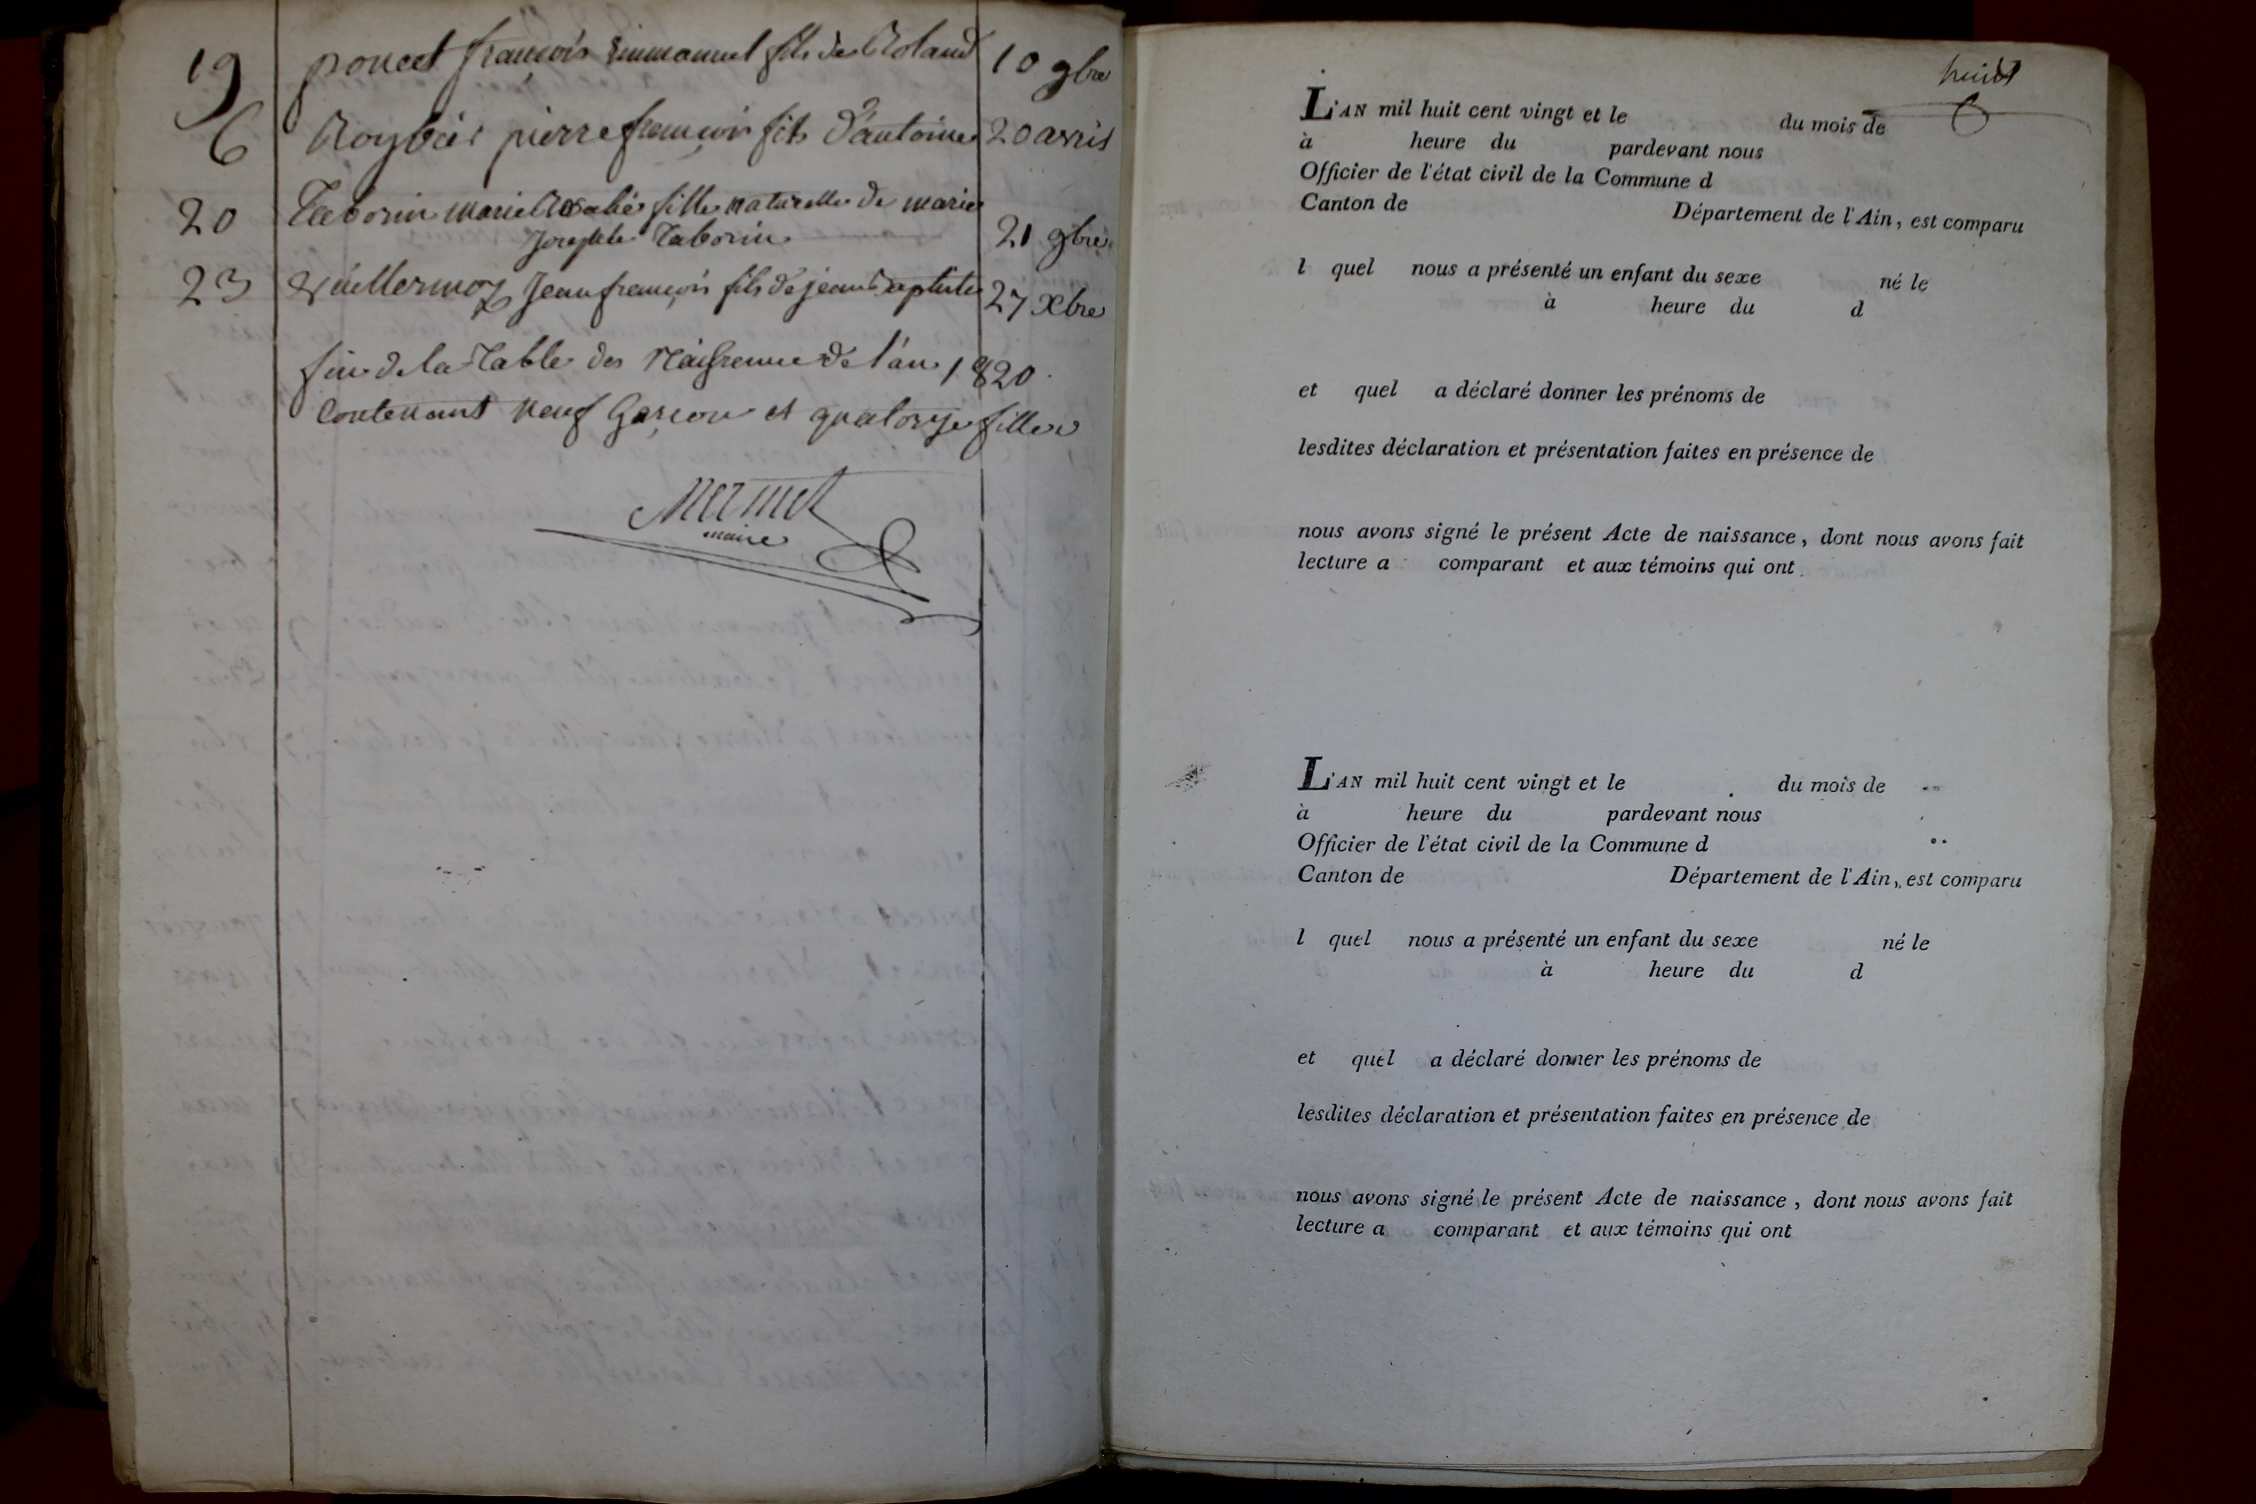 19 poncet françois Emmanuel fils de Roland 10 9bre
6 Roybier pierre françois fils d'antoine 20 avril
20 Taborin marie Rosalie fille naturelle de marie
Josephte Taborin 21 9bre
23 Vuillermoz Jean françois fils de jean Baptiste 27 Xbre
fin de la Table des Naissance de l'an 1820
Contenant neuf Garçon et quatorze filles
Mermet
maire
huit
L'AN mil huit cent vingt et le du mois de
à heure du pardevant nous
Officier de l'état civil de la Commune d
Canton de Département de l'Ain, est comparu
l quel nous a présenté un enfant du sexe né le
à heure du d
et quel a déclaré donner les prénoms de
lesdites déclaration et présentation faites en présence de
nous avons signé le présent Acte de naissance, dont nous avons fait
lecture a comparant et aux témoins qui ont
L'AN mil huit cent vingt et le du mois de
à heure du pardevant nous
Officier de l'état civil de la Commune d
Canton de Département de l'Ain, est comparu
l quel nous a présenté un enfant du sexe né le
à heure du d
et quel a déclaré donner les prénoms de
lesdites déclaration et présentation faites en présence de
nous avons signé le présent Acte de naissance, dont nous avons fait
lecture a comparant et aux témoins qui ont